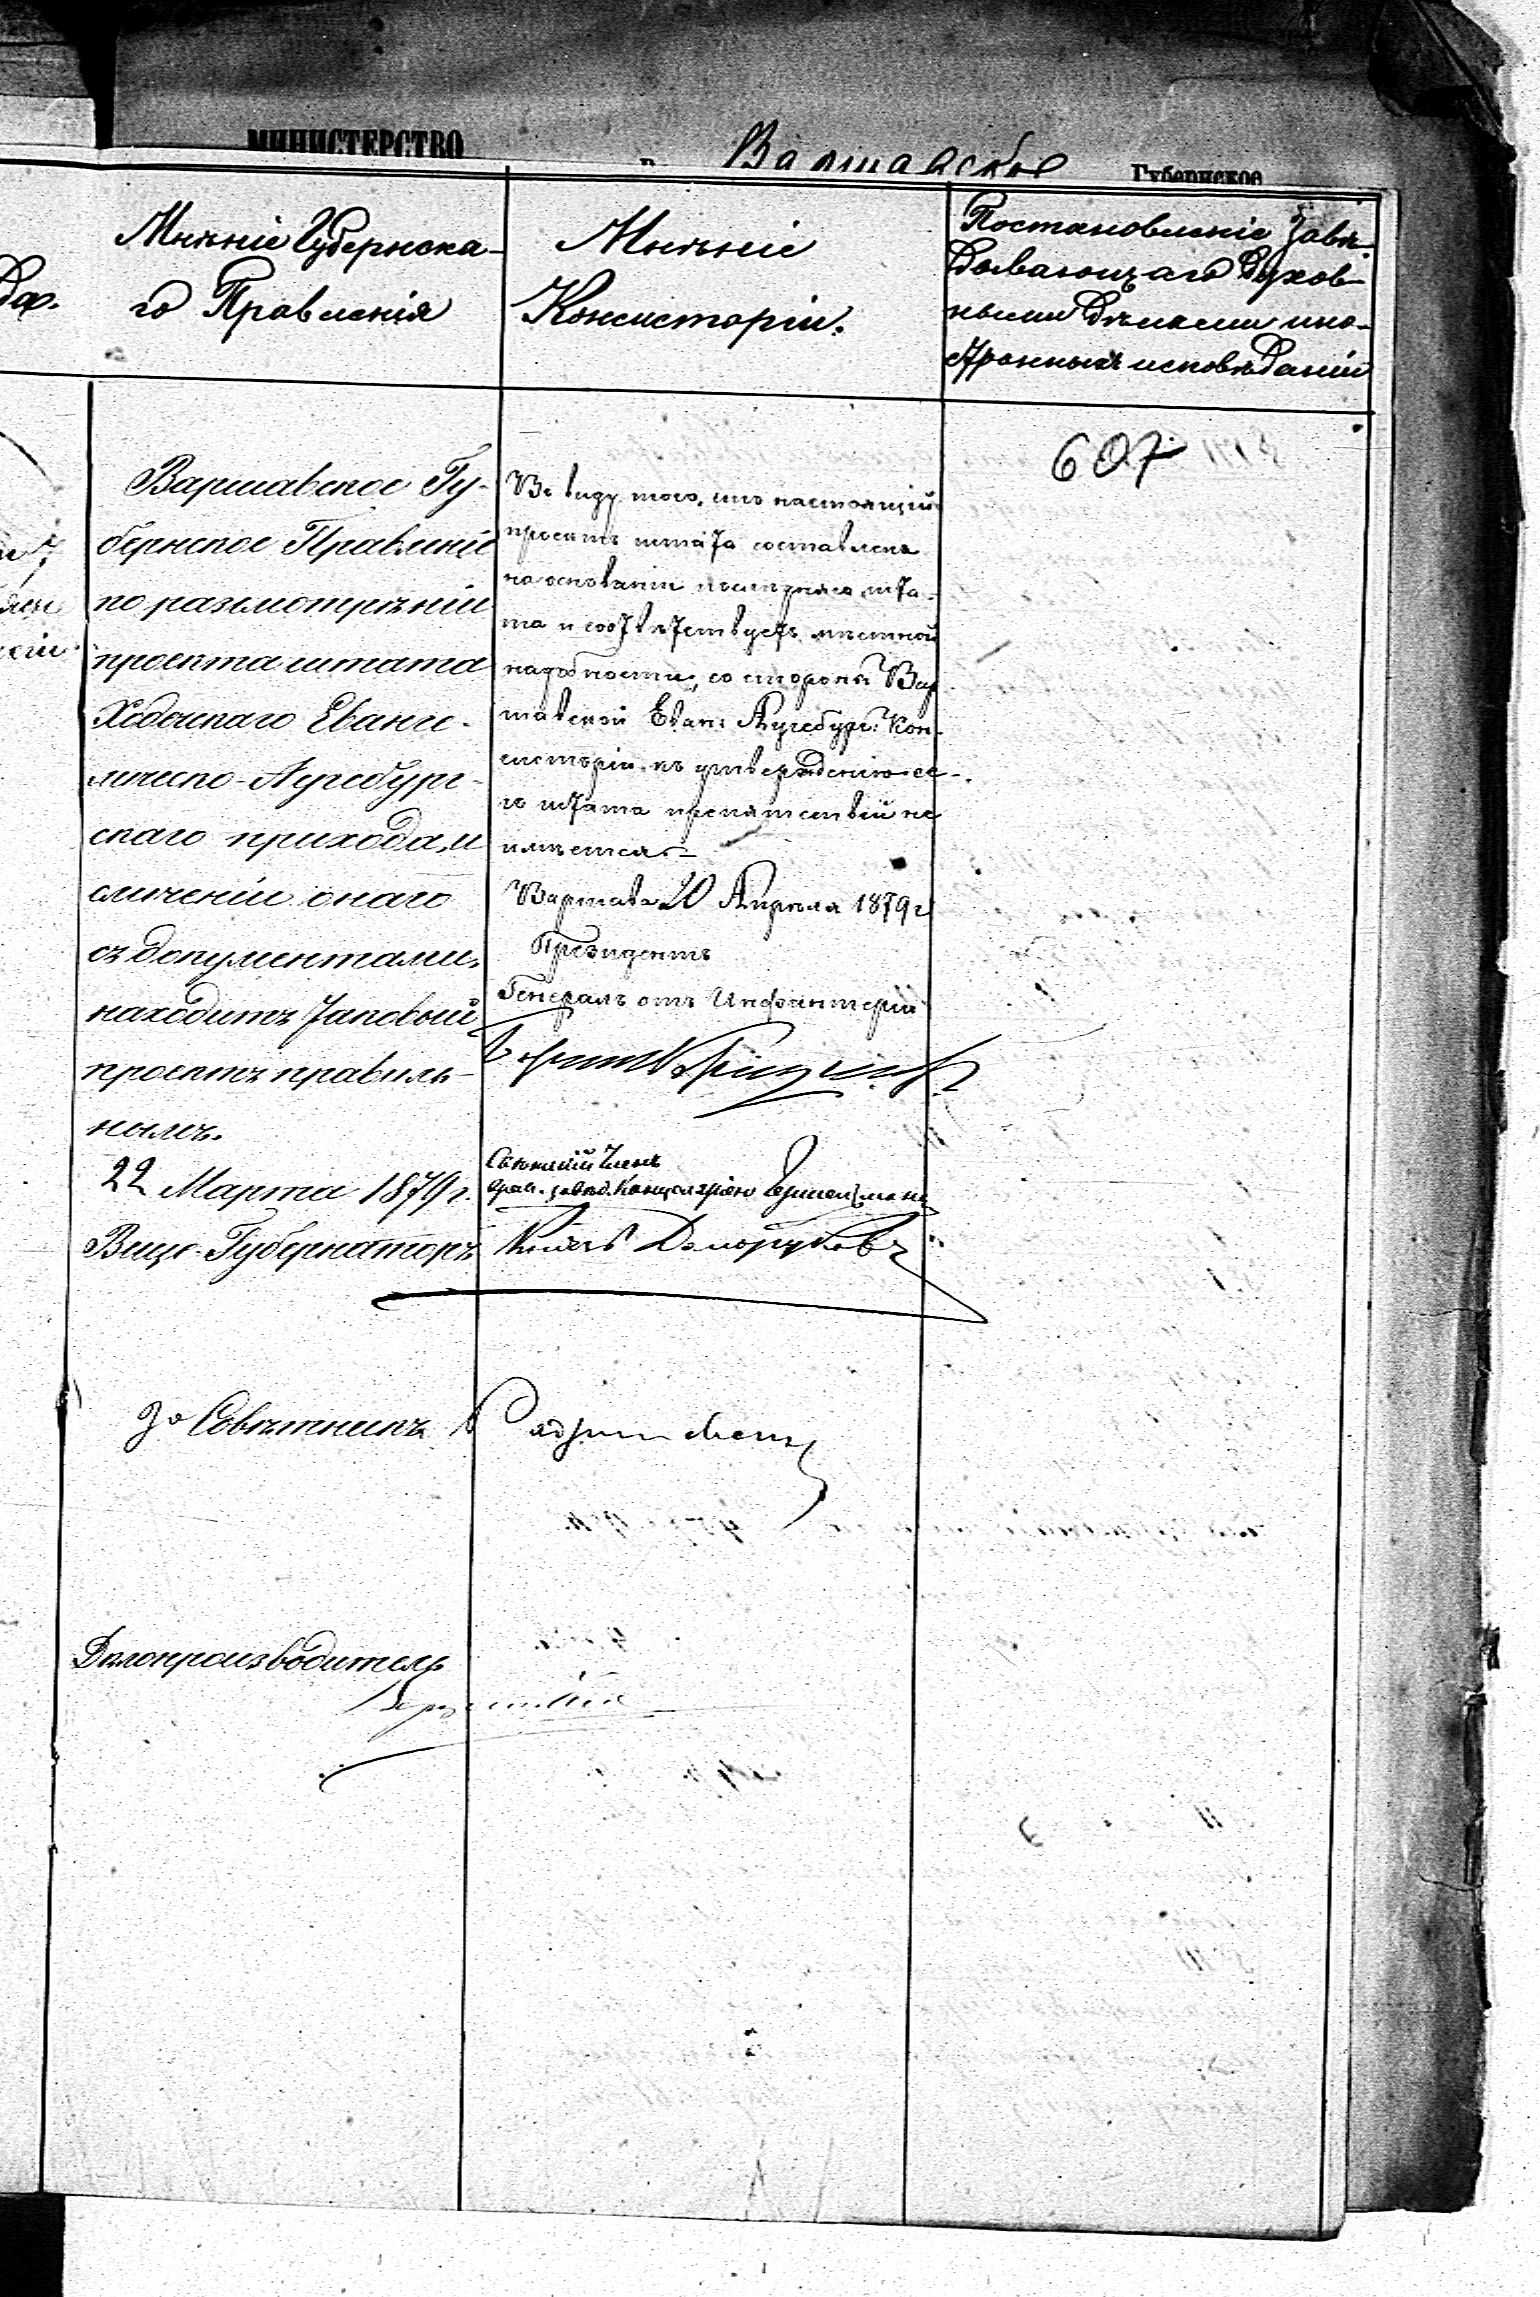 МИНИСТЕРСТВО
Варшавское Губернское
Мнѣніе Губернска-
го Правленія
Мнѣніе
Консисторіи.
Постановленіе Завѣ-
дывающаго Духов-
ными дѣлами ино-
странныхъ исповѣданій
607
Варшавское Гу-
бернское Правленіе
по разсмотрѣніи
проекта штата
Евангe-
лическо-Аугсбург-
скаго прихода, и
сличеніи онаго
съ документами,
находитъ таковый
проектъ правиль-
нымъ.
22 Марта 1879 г.
Вице-Губернаторъ
Князь Долоруковъ
За Совѣтникъ
Дѣлопроизводитель
Въ виду того, что настоящій
проектъ штата составленъ
на основаніи послѣдняго шта-
та и соотвѣтствуетъ мѣстной
надобности, со стороны Вар
шавской Еван: Аугсбург: Кон-
систоріи къ утвержденію се-
го штата препятствій не
имѣется.
Варшава 20 Апрѣля 1879 г
Президентъ
Генералъ отъ Инфантеріи
Членъ
Канцеляріею